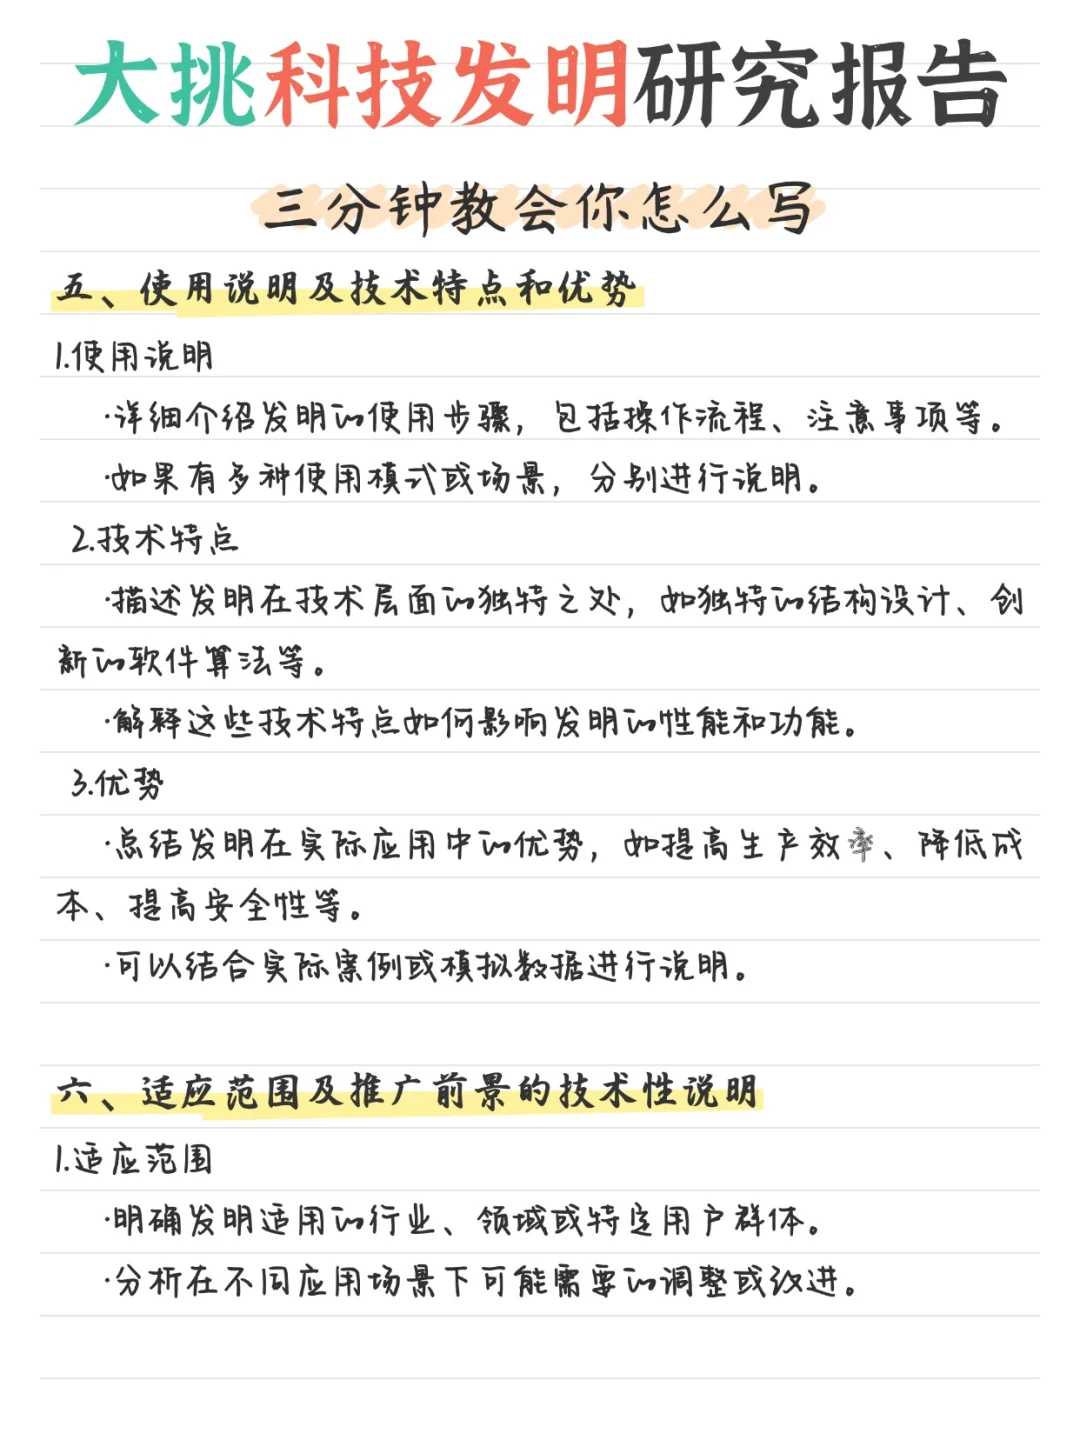 大挑科技发明研究报告
三分钟教会你怎么写
五、使用说明及技术特点和优势
1.使用说明
·详细介绍发明的使用步骤，包括操作流程、注意事项等。
·如果有多种使用模式或场景，分别进行说明。
2.技术特点
·描述发明在技术层面的独特之处，如独特的结构设计、创
新的软件算法等。
·解释这些技术特点如何影响发明的性能和功能。
3.优势
·总结发明在实际应用中的优势，如提高生产效率、降低成
本、提高安全性等。
·可以结合实际案例或模拟数据进行说明。
六、适应范围及推广前景的技术性说明
1.适应范围
·明确发明适用的行业、领域或特定用户群体。
·分析在不同应用场景下可能需要的调整或改进。